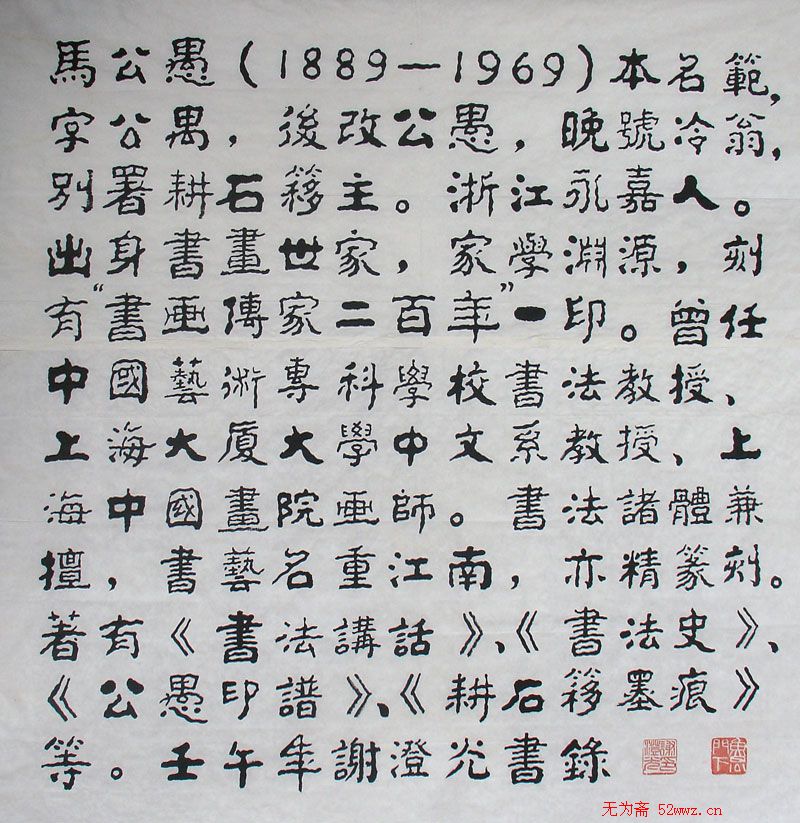 馬公愚(1889—1969)本名範,
字公禺,後改公愚,晚號冷翁,
別署耕石簃主。浙江永嘉人。
出身書畫世家,家學淵源,刻
有“書画傳家二百年”一印。曾任
中國藝術專科學校書法教授、
上海大廈大學中文系教授、上
海中國畫院画師。書法諸體兼
擅,書藝名重江南,亦精篆刻。
著有《書法講話》、《書法史》、
《公愚印譜》、《耕石簃墨痕》
等。壬午年謝澄光書錄
无为斋 52wwz.cn